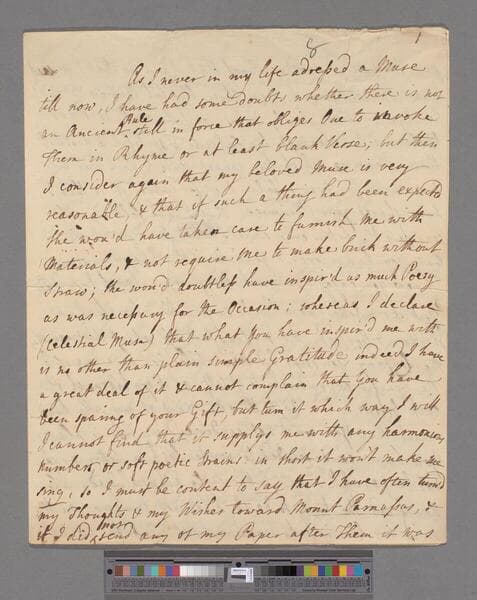 1
As I never in my life adressed a Muse
till now, I have had some doubts whether there is not
an Ancient Rule still in force that obliges One to invoke
Them in Rhyme or at least blank Verse; but then
I consider again that my beloved Muse is very
reasonable, & that if such a thing had been expected
She wou'd have taken care to furnish me with
Materials, & not require me to make brick without
Straw; she wou'd doubtless have inspir'd as much Poesy
as was necessary for the Occasion; whereas I declare
(Celestial Muse) that what You have inspir'd me with
is no other than plain simple Gratitude indeed I have
a great deal of it & cannot complain that You have
been sparing of your Gift, but turn it which way I will
I cannot find that it supplys me with any harmonious
Numbers, or soft poetic strains in short it won't make me
sing, so I must be content to say that I have often turn'd
my Thoughts & my Wishes toward Mount Parnassus, &
if I did not send any of my Paper after Them it was